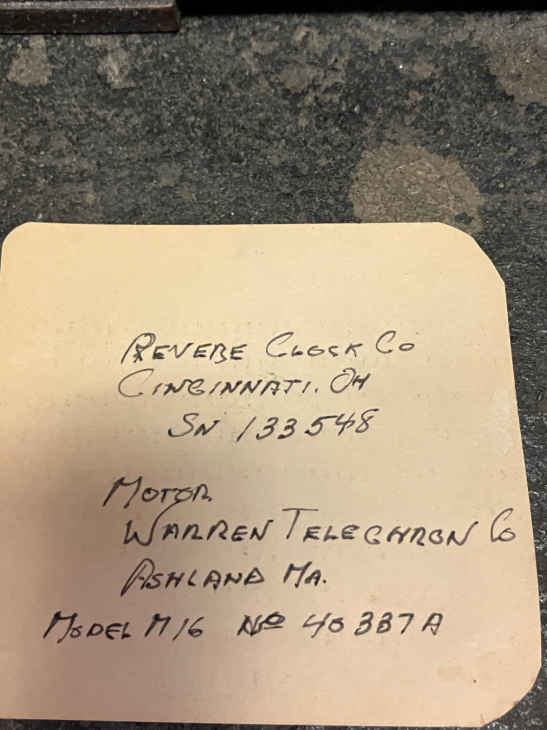 REVERE CLOCK CO
CINCINNATI. OH
SN 133548
MOTOR
WARREN TELECHRON CO
ASHLAND MA.
MODEL M16 No 40387A